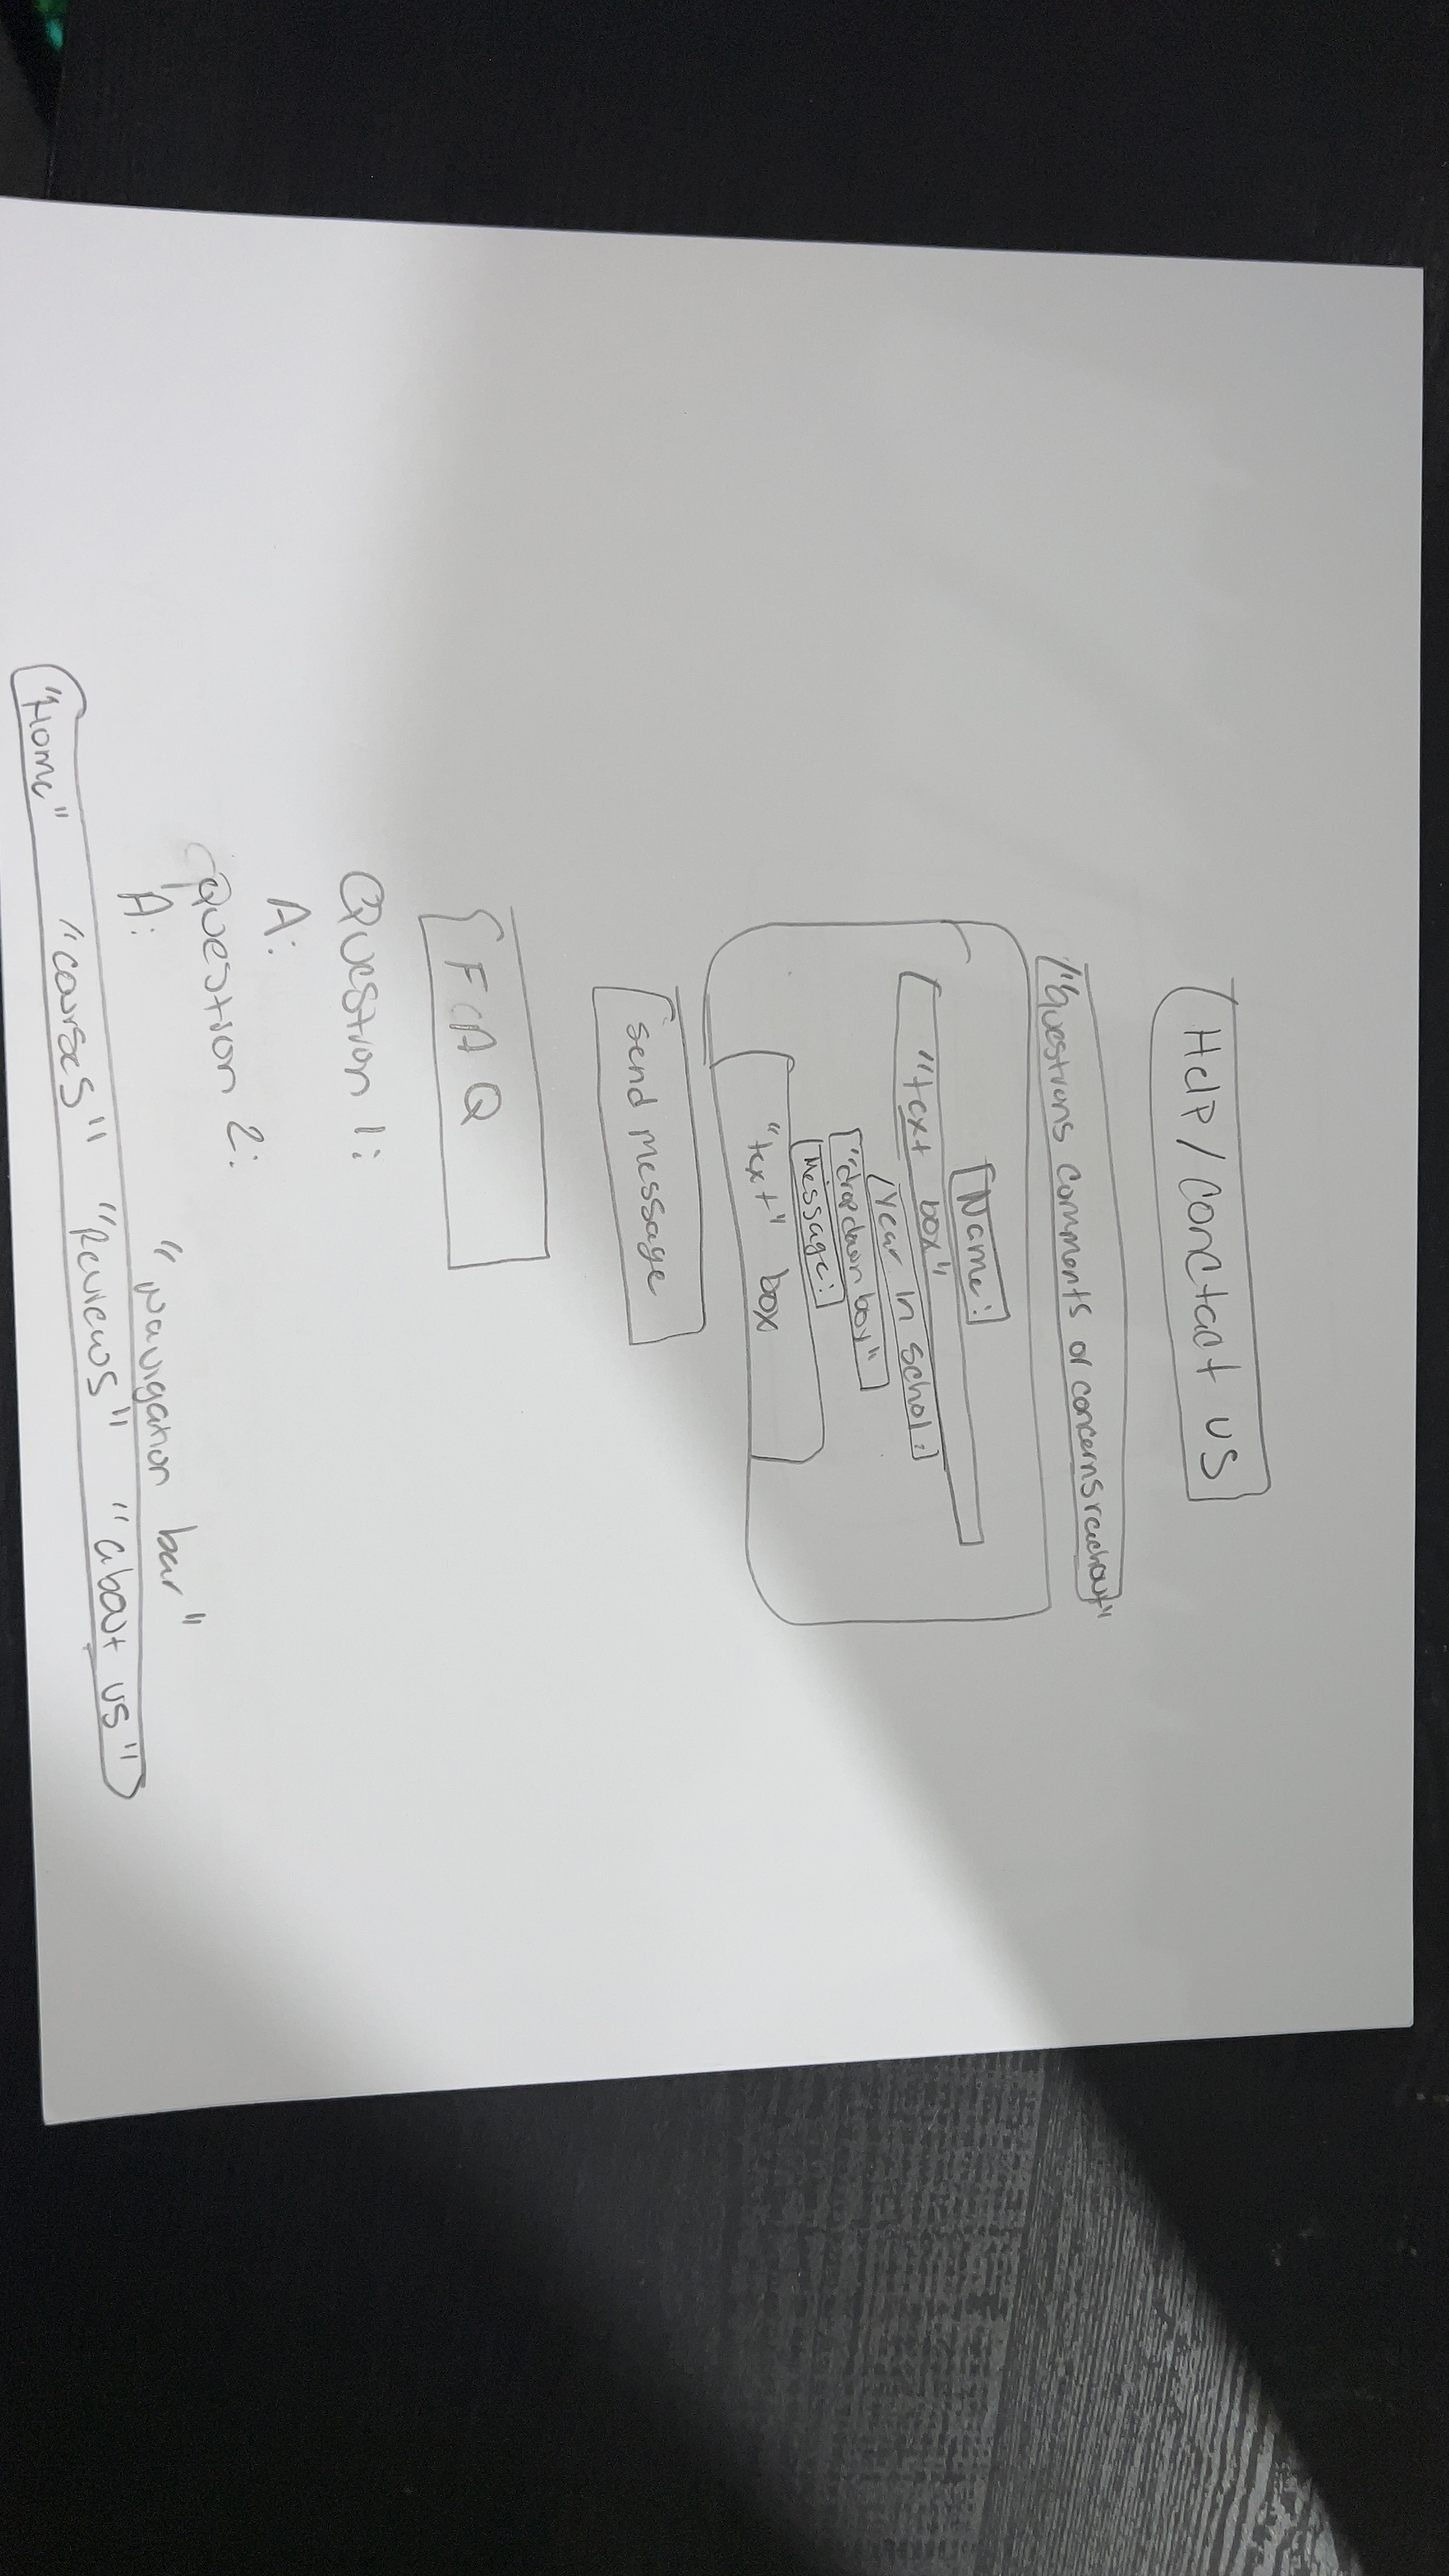 Help / Conctact US
"Questions comments or concerns reachout"
Name:
"text box"
Year in Schol:
"dropdown box"
Message:
"text" box
Send Message
FAQ
Question 1:
A:
Question 2:
A:
"Navigation bar"
"Home" "courses" "Reviews" "about us"